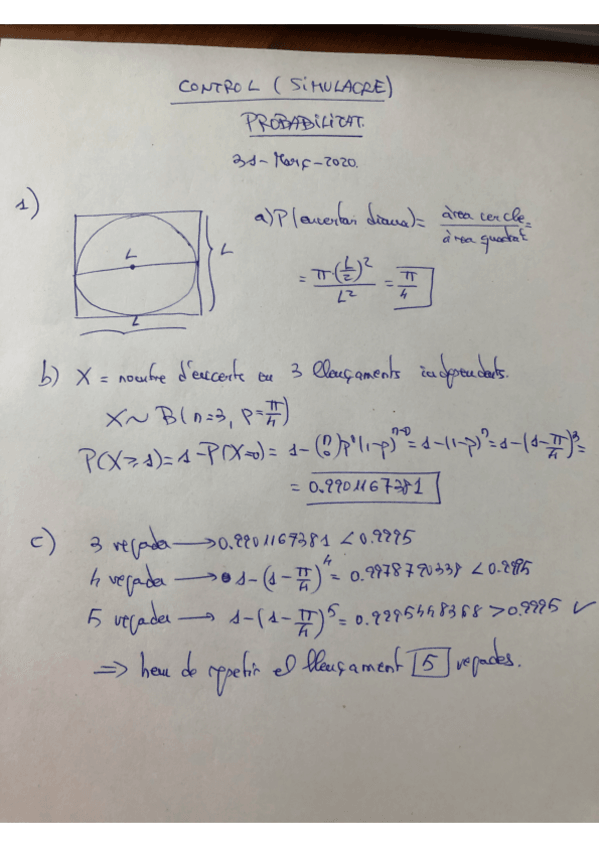 CONTROL (SIMULACRE)
PROBABILITAT.
31-Març-2020.
1)
L
L
L
a) P(encertar diana) = àrea cercle / àrea quadrat =
= π·(L/2)² / L² = π/4
b) X = nombre d'encerts en 3 llençaments independents.
X ~ B(n=3, p=π/4)
P(X≥1) = 1-P(X=0) = 1-(n 0)p⁰(1-p)ⁿ⁻⁰ = 1-(1-p)ⁿ = 1-(1-π/4)³ =
= 0.9901167381
c) 3 vegades → 0.9901167381 < 0.9995
4 vegades → 1-(1-π/4)⁴ = 0.9978790339 < 0.9995
5 vegades → 1-(1-π/4)⁵ = 0.9995448368 > 0.9995 ✓
⇒ hem de repetir el llençament 5 vegades.